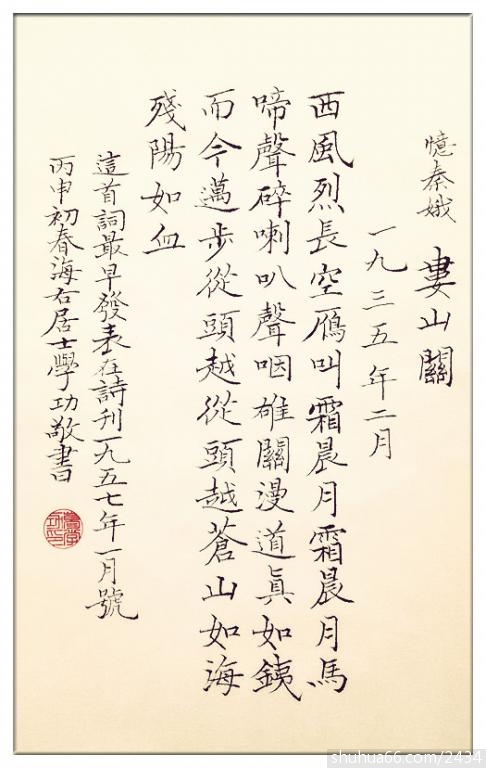 憶秦娥 婁山關
一九三五年二月
西風烈長空雁叫霜晨月霜晨月馬
啼聲碎喇叭聲咽雄關漫道真如鐵
而今邁步從頭越從頭越蒼山如海
殘陽如血
這首詞最早發表在詩刊一九五七年一月號
丙申初春海右居士學功敬書
shuhua66.com/2434